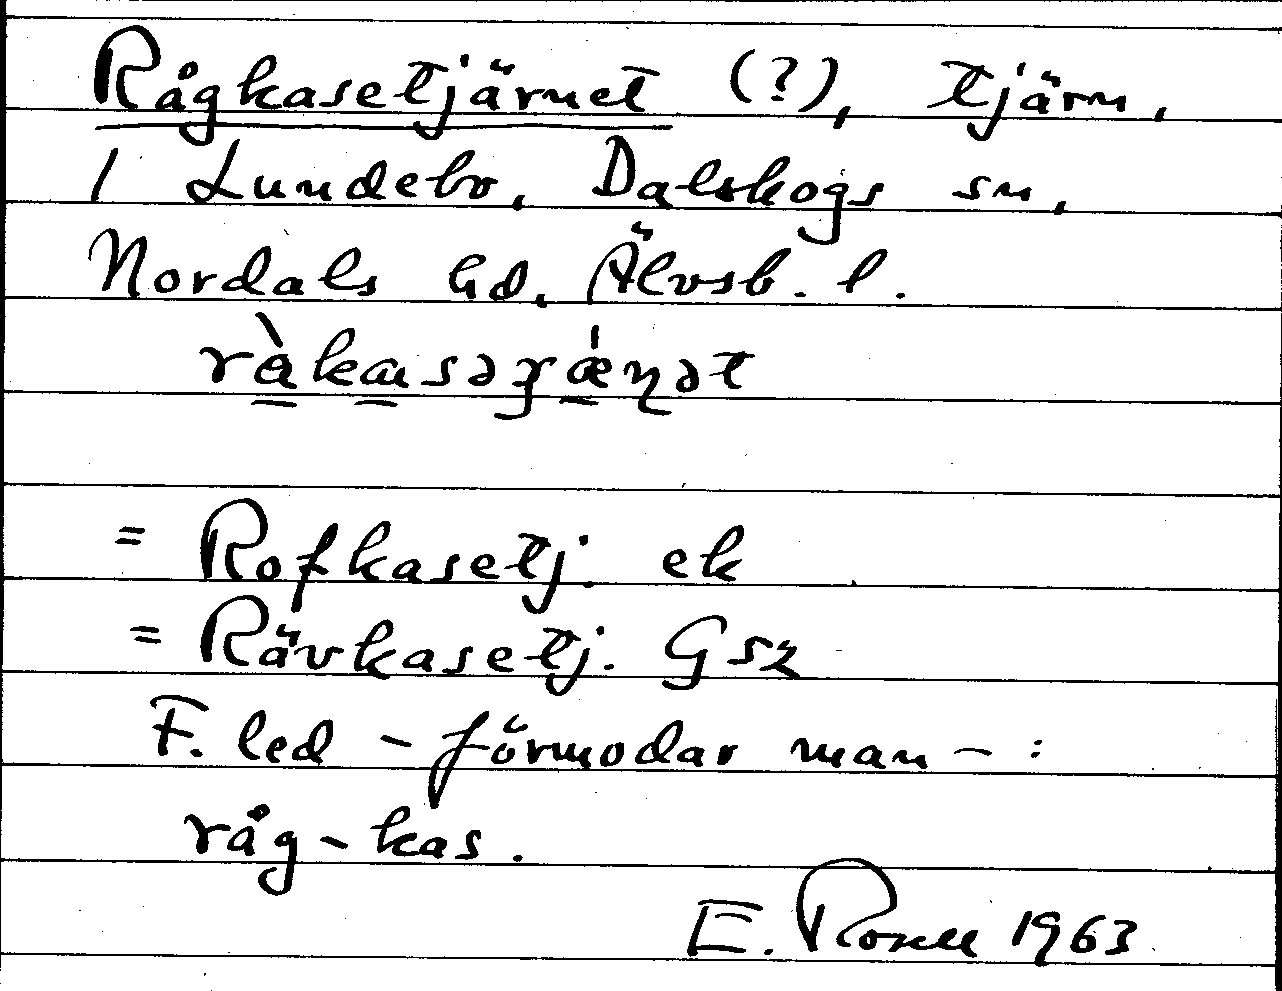 Rågkasetjärnet (?), tjärn,
1 Lundebo, Dalskogs sn,
Nordals hd. Älvsb. l.
= Rofkasetj. ek
= Rävkasetj. Gsz
F. led - förmodar man - :
råg-kas.
E. 1963